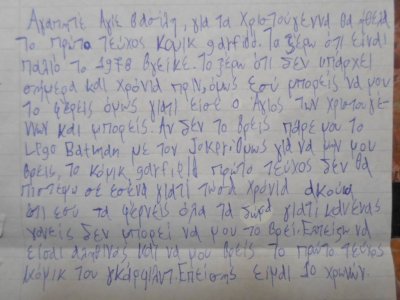 Αγαπητε Άγιε Βασίλη, για τα χριστούγεννα θα ήθελα
το πρώτο τεύχος κόμικ garfild. Το ξέρω ότι είναι
παλιό το 1978 βγείκε. Το ξέρω ότι δεν υπάρχει
σήμερα και χρόνια πριν, όμως εσύ μπορείς να μου
το φέρεις όμως γιατί είσε ο Άγιος των χριστουγέ-
ννων και μπορείς. Αν δεν το βρείς πάρε μου το
Lego Batman με τον Joker. όμως για να μην μου
βρεις, το κόμικ garfield πρώτο τεύχος δεν θα
πιστέψω σε εσένα γιατί τόσα χρόνια άκουσα
ότι εσύ τα φέρνεις όλα τα δώρα γιατί κανένας
γονείς δεν μπορεί να μου το βρεί. Επείσιν να
είσαι αληθινός και να μου βρείς το πρώτο τεύχος
κόμικ του γκάρφιλντ. Επείσης είμαι 10 χρωνών.